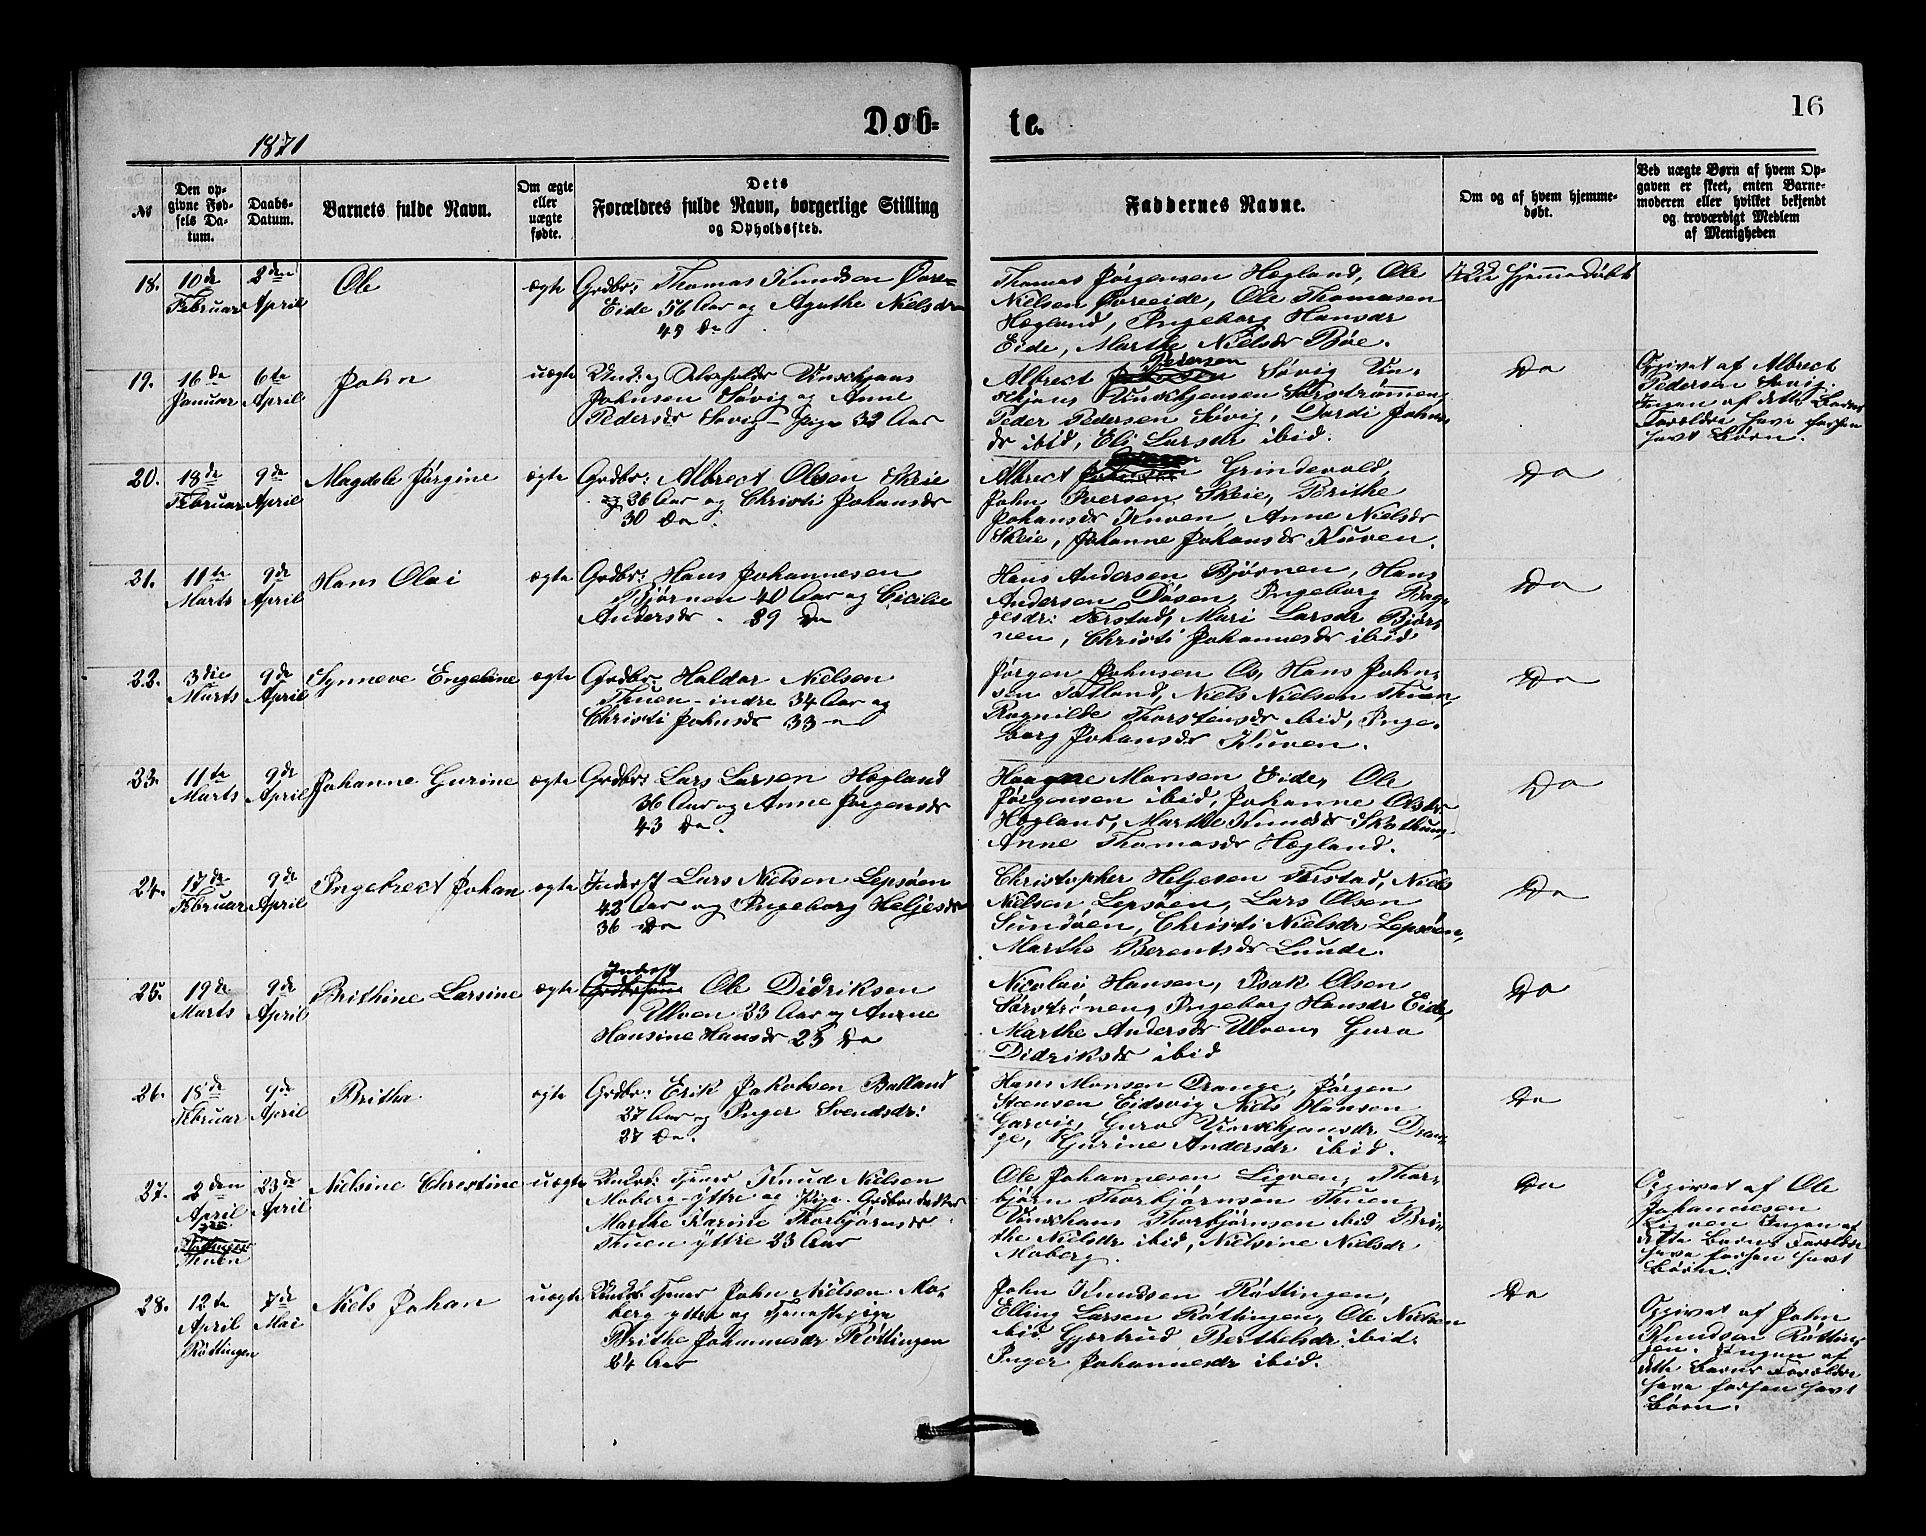 Døb=
te.
16
1871
№
Den op-
givne Fød-
sels Da-
tum.
Daabs-
Datum.
Barnets fulde Navn.
Om ægte
eller
uægte
fødte.
Dets
Forældres fulde Navn, borgerlige Stilling
og Opholdssted.
Faddernes Navne.
Om og af hvem hjemme-
døbt.
Ved uægte Børn af hvem Op-
gaven er skeet, enten Barne-
moderen eller hvilket bekjendt
og troværdigt Medlem
af Menigheden
18.
10de
Februar
2den
April
Ole
ægte
Grdbr: Thomas Knudsen Øvre-
Eide 56 Aar og Agathe Nielsdr
49 Do
Thomas Jørgensen Hægland, Ole
Nielsen Øvreeide, Ole Thomasen
Hægland, Ingeborg Hansdr
Eide, Marthe Nielsdr Bøe.
Hjemmedøbt
19.
16de
Januar
6te
April
John
uægte
Johnsen Søvig og Anne
Pedersdr Søvig Pige 32 Aar
Pedersen
Albrect Søvig Vin-
Peder Pedersen Søvig, Dordi Johns-
dr ibid, Eli Larsdr ibid.
Do
Opgivet af Albrect
Pedersen Søvig.
Ingen af dette Barns
Forældre have forhen
havt Børn.
20.
18de
Februar
9de
April
Magdele Jørgine
ægte
Grdbr: Albrect Olsen Skeie
36 Aar og Christi Johansdr
30 Do.
Albrect Grindevold,
John Iversen Skeie, Brithe
Johansdr Kuven, Anne Nielsdr
Skeie, Johanne Johansdr Kuven.
Do
21.
11te
Marts
9de
April
Hans Olai
ægte
Grdbr: Hans Johannesen
Bjørnen 40 Aar og Cicilie
Andersdr. 39 Do
Hans Andersen Bjørnen, Hans
Andersen Døsen, Ingeborg
Forstad, Mari Larsdr Bjør-
nen, Christi Johannesdr ibid
Do
22.
3die
Marts
9de
April
Synneve Engeline
ægte
Grdbr: Haldor Nielsen
Thuen indre 34 Aar og
Christi Johnsdr 33
Jørgen Johnsen Os, Hans John-
sen Søfteland, Niels Nielsen Thuen
Ragnilde Thorstensdr ibid, Inge-
borg Johansdr Kuven.
Do
23.
11te
Marts
9de
April
Johanne Gurine
ægte
Grdbr: Lars Larsen Hægland
36 Aar og Anne Jørgensdr
43 Do.
Haagne Monsen Eide, Ole
Jørgensen ibid, Johanne Olsdr
Hægland, Marthe Knudsdr
Anne Thomasdr Hægland.
Do
24.
17de
Februar
9de
April
Ingebrect Johan
ægte
Inderst Lars Nielsen Lepsøen
42 Aar og Ingeborg Heljesdr
36 Do
Christopher Heljesen Forstad, Niels
Nielsen Lepsøen, Lars Olsen
Sundøen, Christi Nielsdr Lepsøen,
Marthe Berentsdr Lunde.
Do
25.
19de
Marts
9de
April
Brithine Larsine
ægte
Inderst
Ole Didriksen
Ulven 23 Aar og Anne
Hansine Hansdr 23 Do
Nicolai Hansen, Isak Olsen
Sørstrønen, Ingeborg Hansdr Eide,
Marthe Andersdr Ulven, Guro
Didriksdr ibid
Do
26.
18de
Februar
9de
April
Britha
ægte
Grdbr: Erik Jakobsen Balland
27 Aar og Inger Svendsdr:
27 Do.
Hans Monsen Drange, Jørgen
Steensen Eidsvig Niels Hansen
Garvig, Guro Dran-
ge, Gurine Andersdr ibid.
Do
27.
2den
April
Thuen
23de
April
Nielsine Chrestine
uægte
Knud Nielsen
Moberg ÿttre og Pige. Grdbr. datter
Marthe Karine Thorbjørnsdr
Thuen ÿttre 23 Aar
Ole Johannesen Ligven, Thor-
bjørn Thorbjørnsen Thuen
Thorbjørnsen ibid Bri-
the Nielsdr ibid, Nielsine Nielsdr
Moberg.
Do
Opgivet af Ole
Johannesen
Ligven Ingen af
dette Barns Forældre
have forhen havt
Børn.
28.
12te
April
Røttingen
7de
Mai
Niels Johan
uægte
John Nielsen Mo-
berg yttre og Tjenestepige
Brithe Johannesdr Røttingen
24 Aar
John Knudsen Røttingen,
Elling Larsen Røttingen, Ole Nielsen
ibid Gjertrud Berthelsdr ibid,
Inger Johannesdr ibid.
Do
Opgivet af John
Knudsen Røttin-
gen. Ingen af
dette Barns Forældre
have forhen havt
Børn.